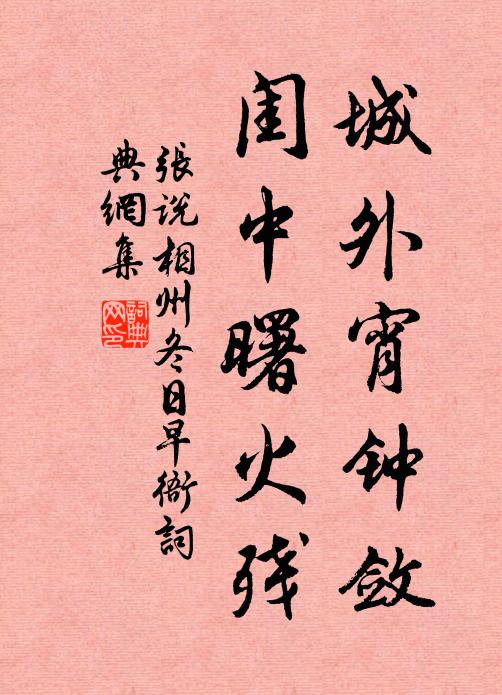 城外宵钟敛
闺中曙火残
張说相州冬日早衙詞
典網集
詞典
网印